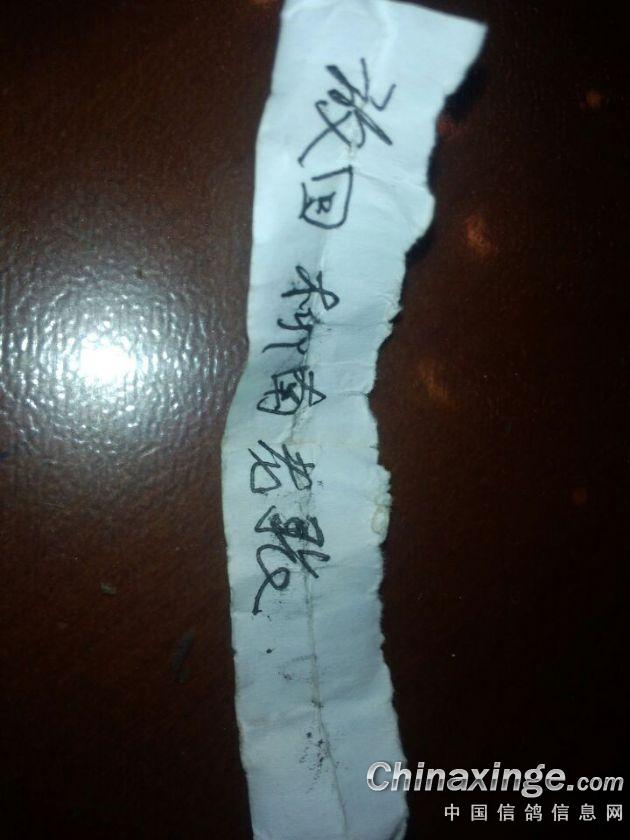 放回 柳南 老
Chinaxinge.com
中国信鸽信息网